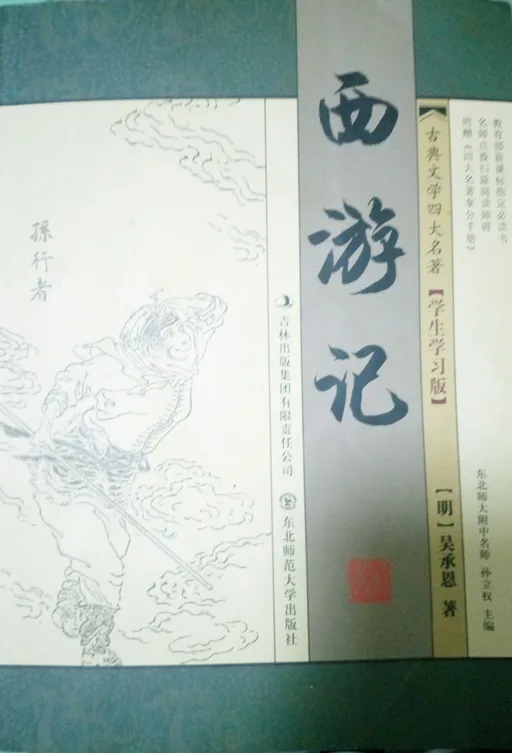 教育部新课标指定必读书
名师点拨扫除阅读障碍
附赠《四大名著拿分手册》
古典文学四大名著【学生学习版】
西游记
[明]吴承恩 著
东北师大附中名师 孙立权 主编
吉林出版集团有限责任公司
东北师范大学出版社
孫行者